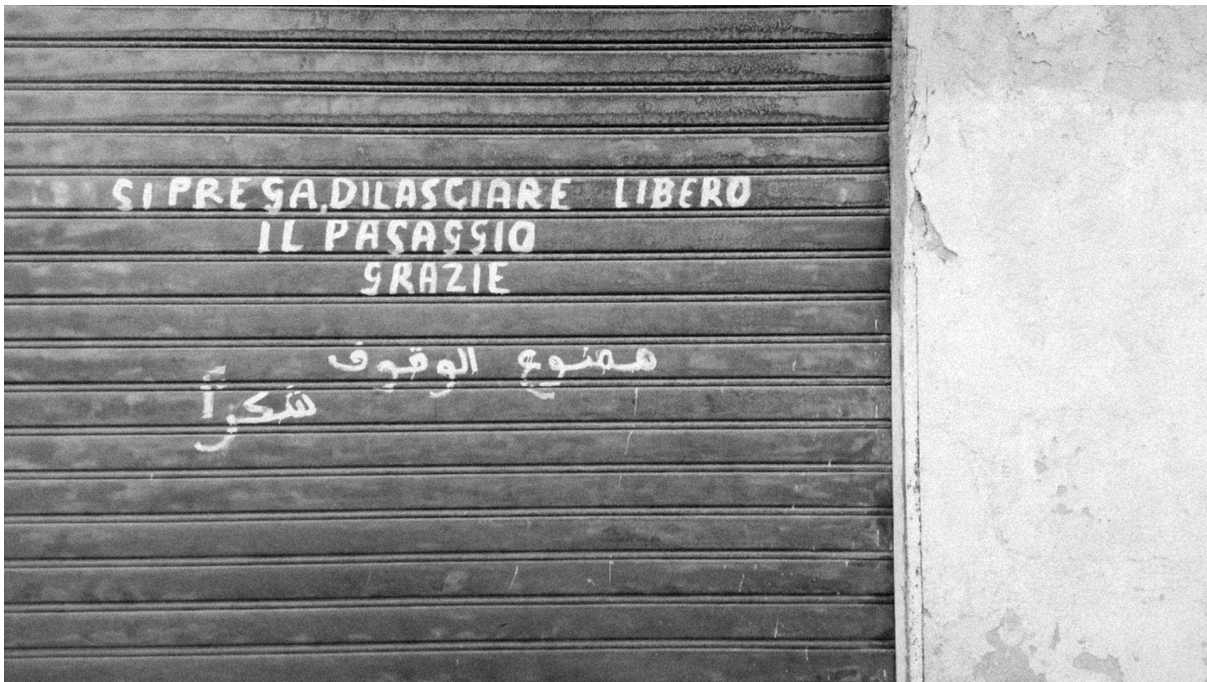 SI PREGA, DI LASCIARE LIBERO
IL PASAGGIO
GRAZIE
ممنوع الوقوف
شكراً